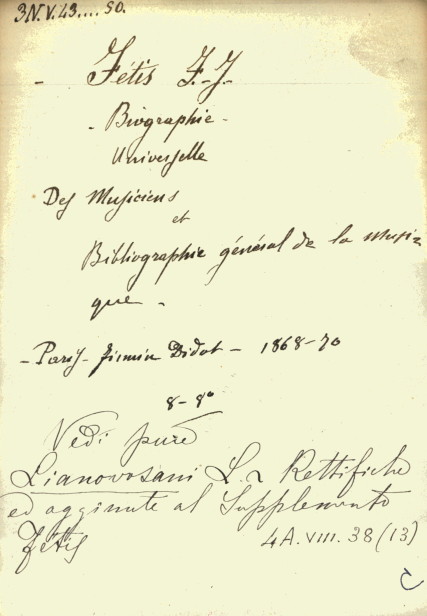 3N.V.43....50.
- Fétis F.-J.
- Biographie -
Universelle
Des Musiciens
et
Bibliographie général de la Musi=
que -
- Paris - Firmin Didot - 1868-70
8 - 8°
Vedi pure
Lianovosani L. Rettifiche
ed aggiunte al Supplemento
Fétis
4A.VIII.38(13)
C